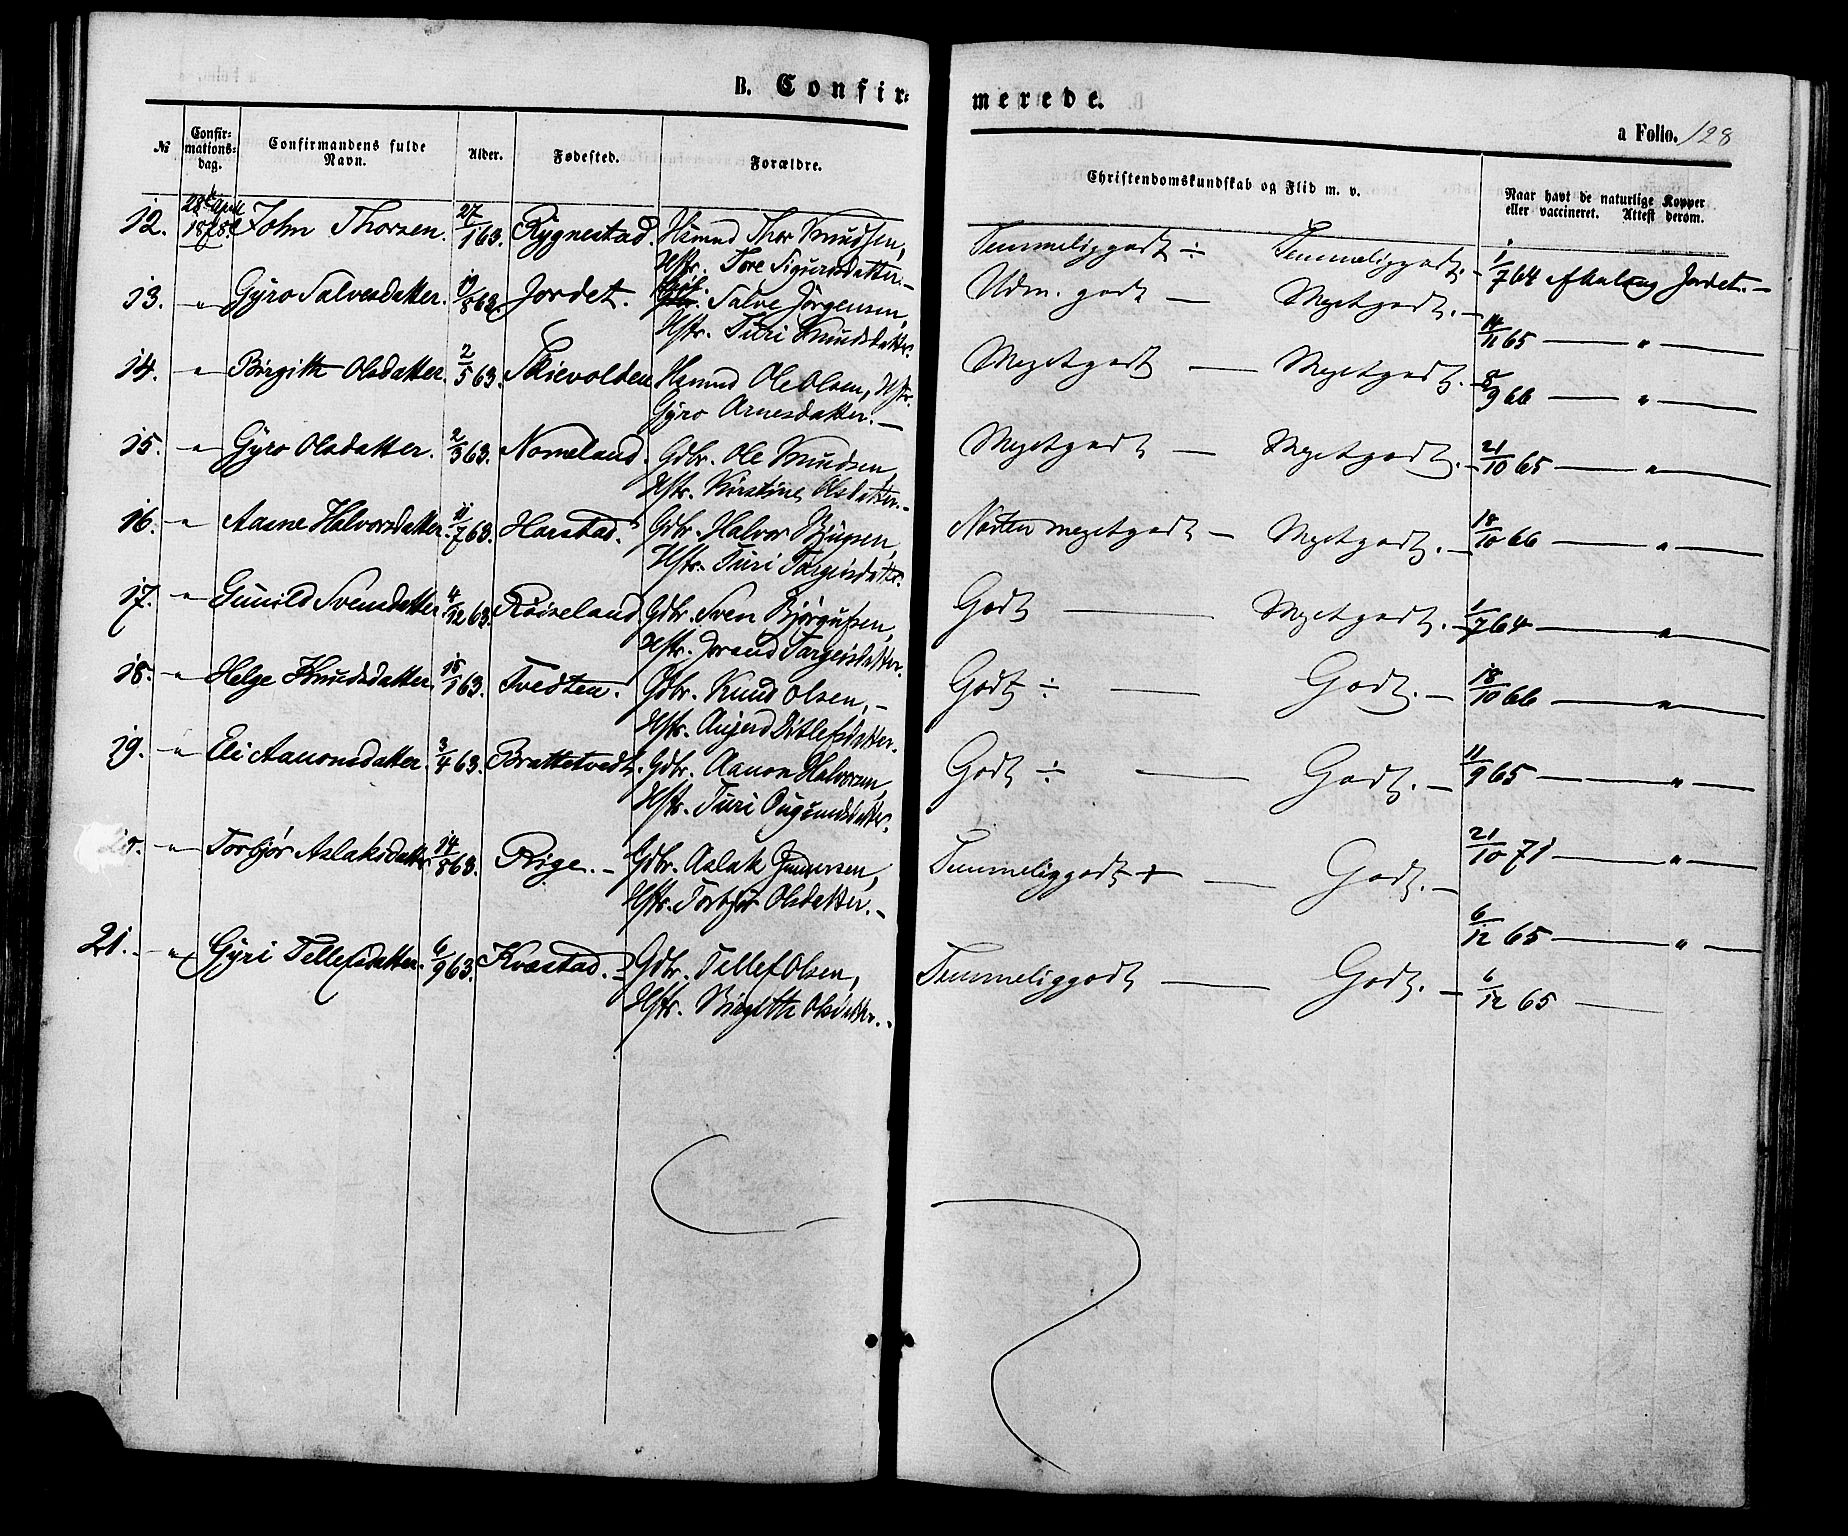 B. Confir-
merede.
a Folio. 128
№
Confir-
mations-
dag.
Confirmandens fulde
Navn.
Alder.
Fødested.
Forældre.
Christendomskundskab og Flid m. v.
Naar havt de naturlige Kopper
eller vaccineret. Attest derom.
12. 28de April 1878. John Thorsen. 27/1 63. Rygnestad. Hsmnd Thor Knudsen,
Hstr. Tore Sigurdsdatter.—
Temmeliggodt ÷ Temmeliggodt.— 1/7 64 Jordet.—
13. — " Gyro Salvesdatter. 19/8 63. Jordet. Salve Jörgensen,
Hstr. Turi Knudsdatter.
Udm. godt — Megetgodt.— 14/11 65 — " —
14. — " Birgith Olsdatter. 2/5 63. Skievolden Hsmnd Ole Olsen, Hstr.
Gyro Arnesdatter.—
Megetgodt — Megetgodt.— 8/9 66 — " —
15. — " Gyro Olsdatter. 2/3 63. Nomeland. Gdbr. Ole Knudsen,
Hstr. Kirstine Olsdatter.—
Megetgodt — Megetgodt.— 21/10 65 — " —
16. — " Aasne Halvorsdatter. 11/7 63. Harstad. Gdbr. Halvor
Hstr. Turi Targeisdatter.
Næsten megetgodt — Megetgodt.— 18/10 66 — " —
17. — " Gunild Svensdatter. 4/12 63. Röiseland. Gdbr. Sven Björgufsen,
Hstr. Jorand Targeisdatter.
Godt — Megetgodt.— 1/7 64 — " —
18. — " Helge Knudsdatter. 15/1 63. Tvedten. Gdbr. Knud Olsen,—
Hstr. Ditlefsdatter.
Godt ÷ — Godt.— 18/10 66 — " —
19. — " Eli Aanonsdatter. 3/4 63. Brattetvedt. Gdbr. Aanon Halvorsen,
Hstr. Turi Ougundsdatter.
Godt ÷ — Godt.— 11/9 65 — " —
20. — " Torbjör Aslaksdatter 14/8 63. Rige.— Gdbr. Aslak Gunnarsen,
Hstr. Torbjör Olsdatter.—
Temmeliggodt + — Godt.— 21/10 71 — " —
6/12 65 — " —
21. — " Gyri Tellefsdatter. 6/9 63. Kvæstad. Gdbr. Tellef Olsen,
Hstr. Birgitth Olsdatter.—
Temmeliggodt — Godt.— 6/12 65 —